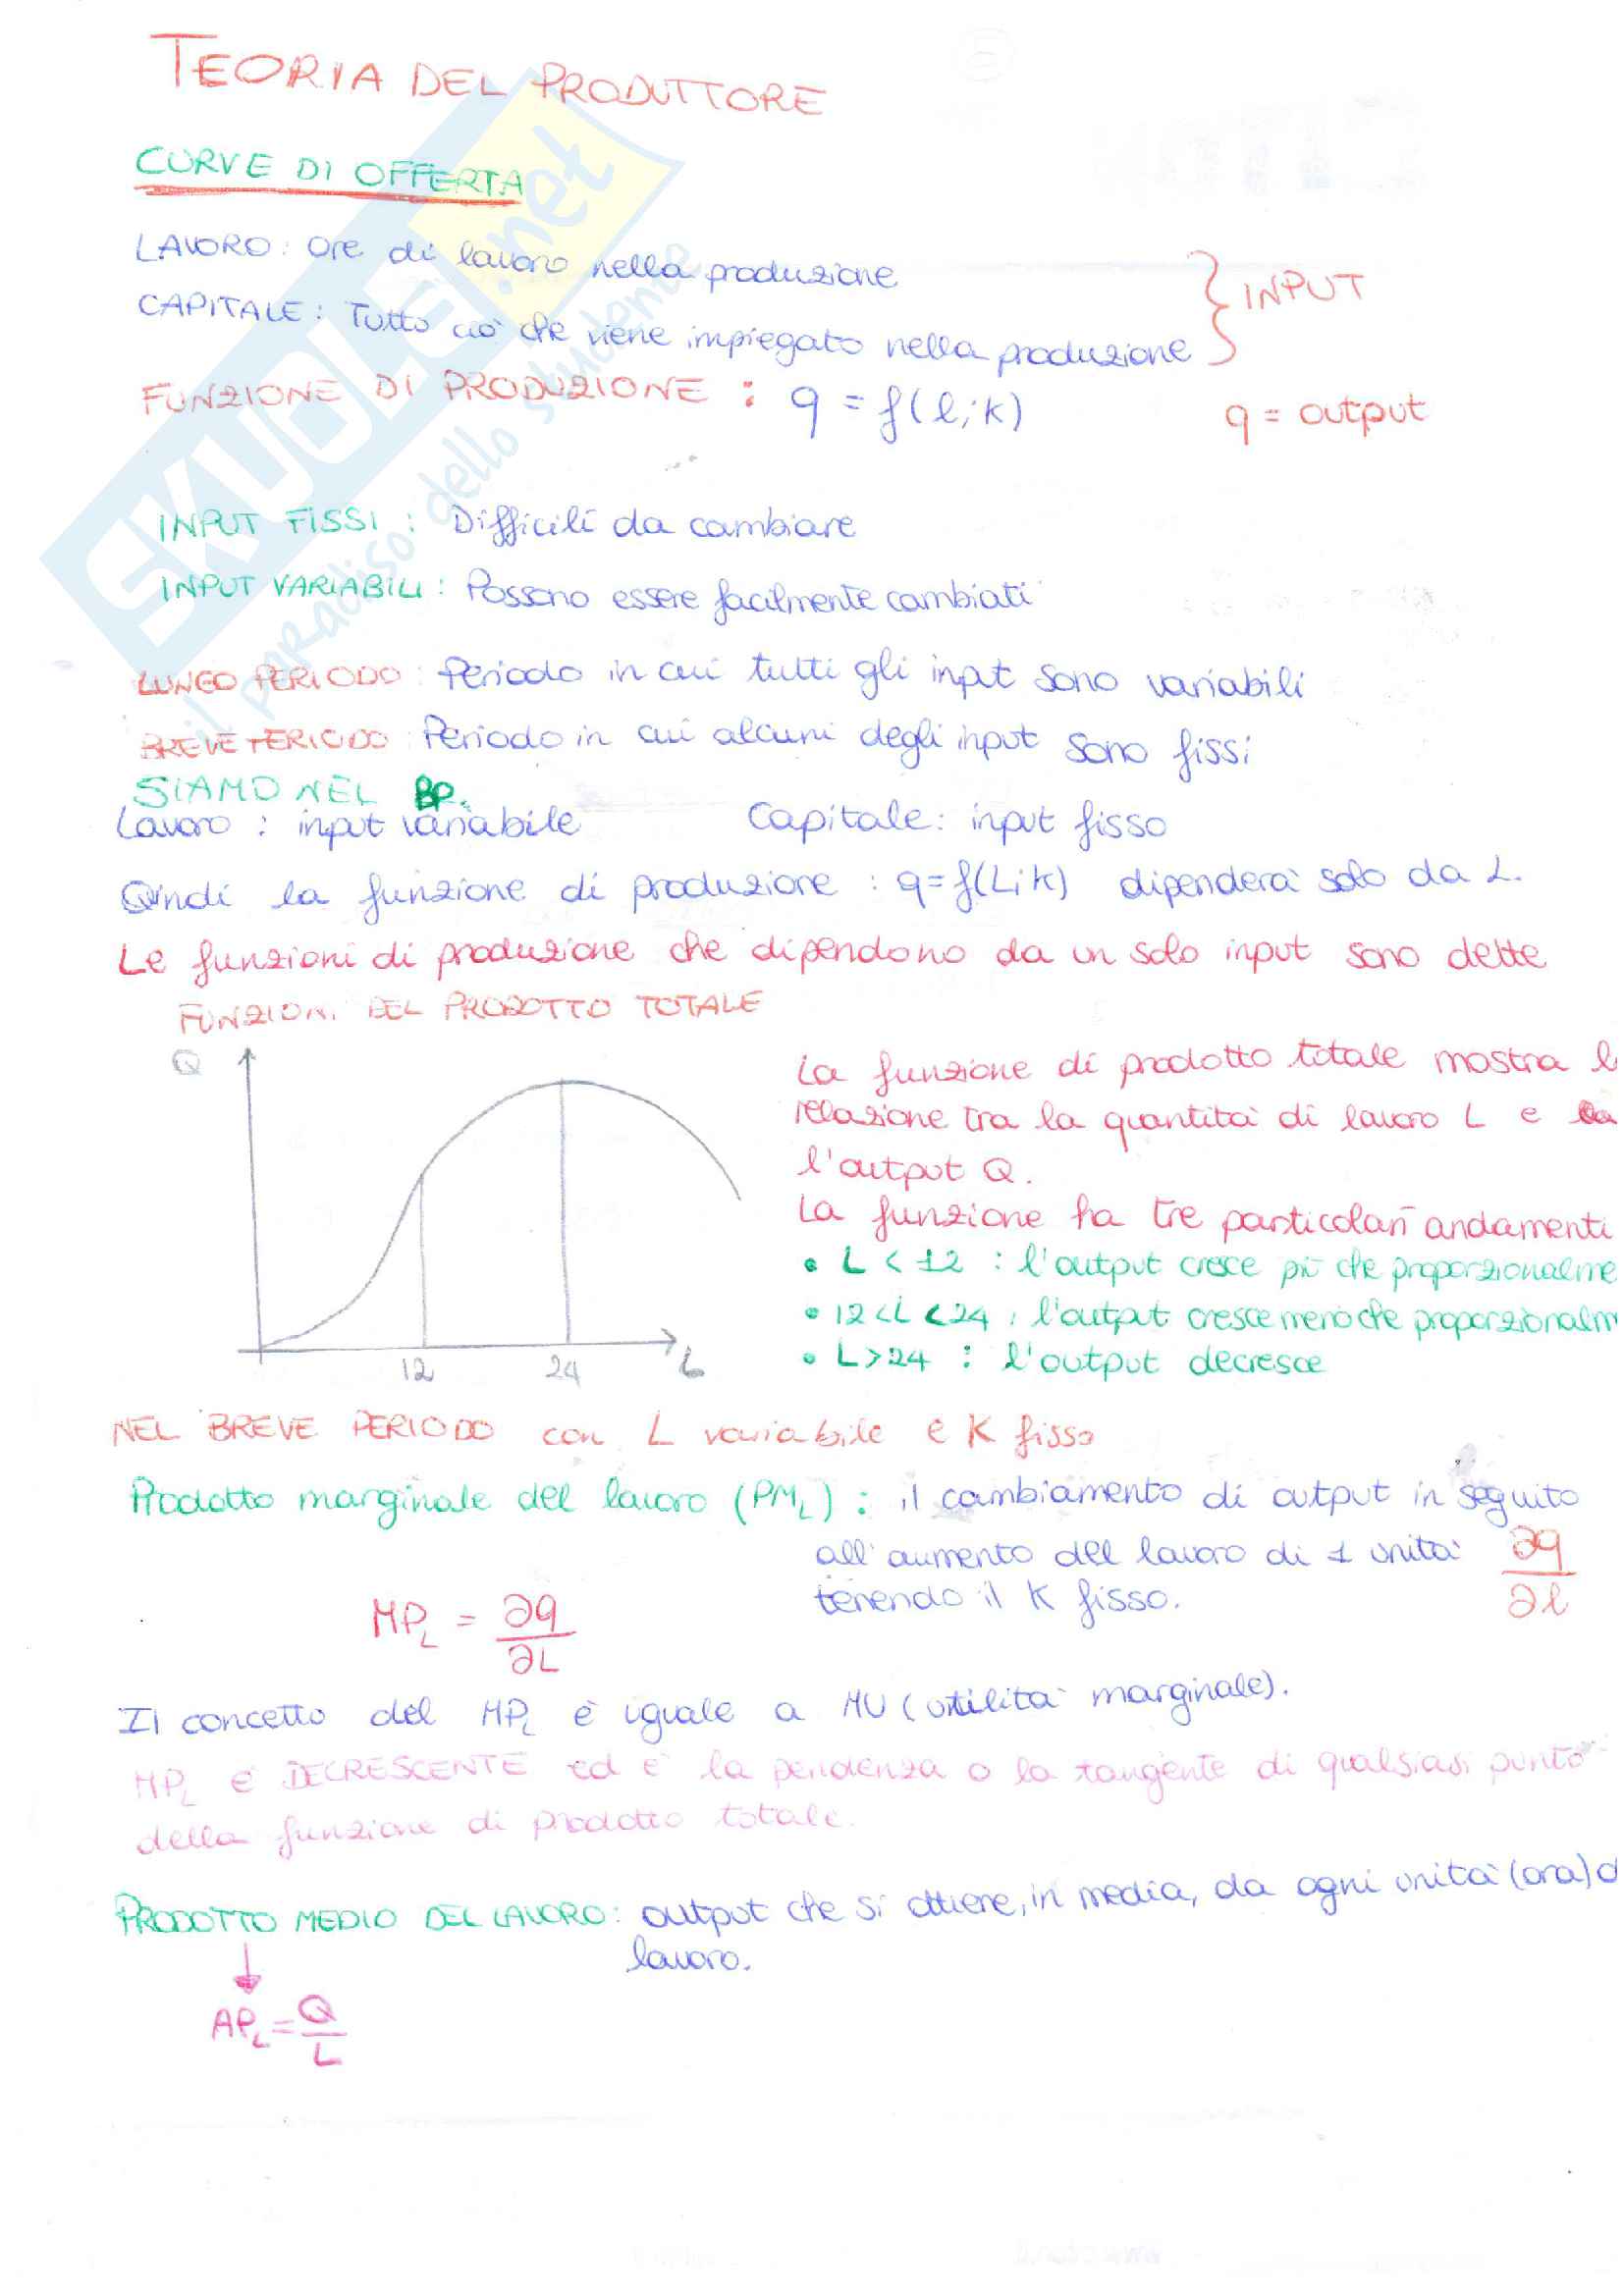 TEORIA DEL PRODUTTORE
CURVE DI OFFERTA
LAVORO: Ore di lavoro nella produzione
CAPITALE: Tutto ciò che viene impiegato nella produzione
} INPUT
FUNZIONE DI PRODUZIONE : q = f(l; k)
q = output
INPUT FISSI : Difficili da cambiare
INPUT VARIABILI : Possono essere facilmente cambiati
LUNGO PERIODO : Periodo in cui tutti gli input sono variabili
BREVE PERIODO : Periodo in cui alcuni degli input sono fissi
SIAMO NEL BP.
Lavoro : input variabile Capitale: input fisso
Qindi la funzione di produzione : q=f(L;k) dipenderà solo da L.
Le funzioni di produzione che dipendono da un solo input sono dette
FUNZIONI DEL PRODOTTO TOTALE
Q
12 24 L
La funzione di prodotto totale mostra l
relazione tra la quantità di lavoro L e la
l'output Q.
La funzione ha tre particolari andamenti
• L < 12 : l'output cresce più che proporzionalme
• 12<L<24 : l'output cresce meno che proporzionalm
• L>24 : l'output decresce
NEL BREVE PERIODO con L variabile e K fisso
Prodotto marginale del lavoro (PML) : il cambiamento di output in seguito
all'aumento del lavoro di 1 unità ∂q/∂l
tenendo il K fisso.
MPL = ∂q/∂L
Il concetto del MPL è uguale a MU (utilità marginale).
MPL è DECRESCENTE ed è la pendenza o la tangente di qualsiasi punto
della funzione di prodotto totale.
PRODOTTO MEDIO DEL LAVORO: output che si ottiene, in media, da ogni unità (ora) d
lavoro.
APL = Q/L
SKUOLA.net
il paradiso dello studente